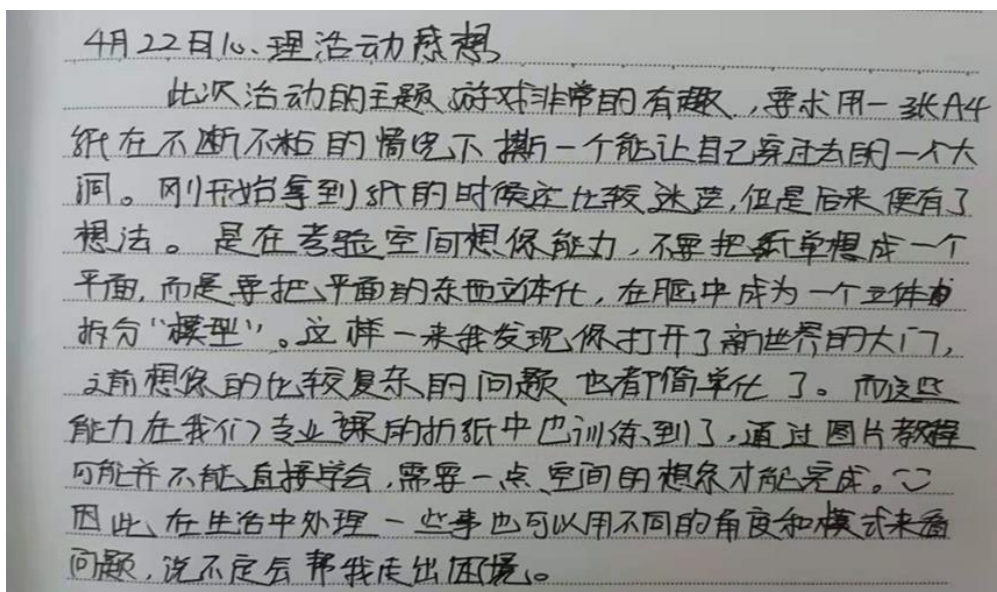 4月22日心理活动感想
此次活动的主题游戏非常的有趣,要求用一张A4
纸在不断不粘的情况下撕一个能让自己穿过去的一个大
洞。刚开始拿到纸的时候还比较迷茫,但是后来便有了
想法。是在考验空间想像能力,不要把纸单想成一个
平面,而是要把平面的东西立体化,在脑中成为一个立体
拆分“模型”。这样一来我发现像打开了新世界的大门,
之前想像的比较复杂的问题也都简单化了。而这些
能力在我们专业课的折纸中也训练到了,通过图片教程
可能并不能直接学会,需要一点空间的想象才能完成。
因此,在生活中处理一些事也可以用不同的角度和模式来看
问题,说不定会帮我走出困境。